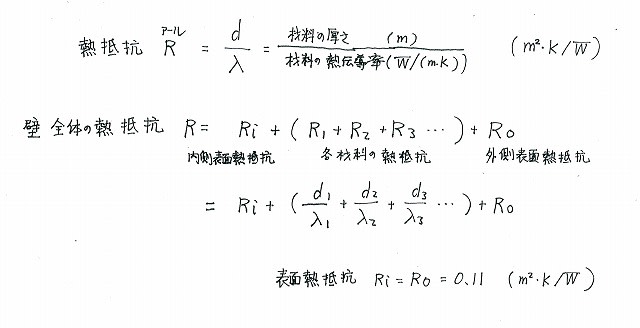 熱抵抗 R(アール) = d/λ = 材料の厚さ (m)/材料の熱伝導率(W/(m·K)) (m²·K/W)
壁全体の熱抵抗 R = Ri + (R₁ + R₂ + R₃ …) + Ro
内側表面熱抵抗 各材料の熱抵抗 外側表面熱抵抗
= Ri + (d₁/λ₁ + d₂/λ₂ + d₃/λ₃ …) + Ro
表面熱抵抗 Ri = Ro = 0.11 (m²·K/W)